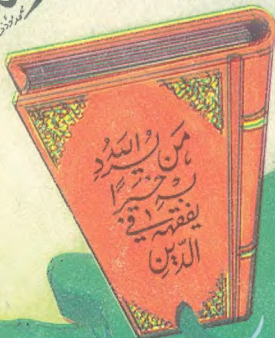 مَن يُرِدِ اللهُ
بِهِ خَيْرًا
يُفَقِّههُ فِي
الدِّينِ